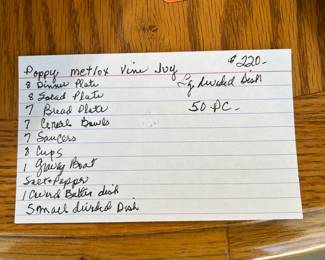 Poppy metlox Vine Ivy
$220-
8 Dinner Plate
Lg divided Dish
8 Salad Plate
7 Bread Plate
50 PC.
7 Cereal Bowls
7 Saucers
8 Cups
1 Gravy Boat
Salt & Pepper
1 Covered Butter dish
Small divided Dish